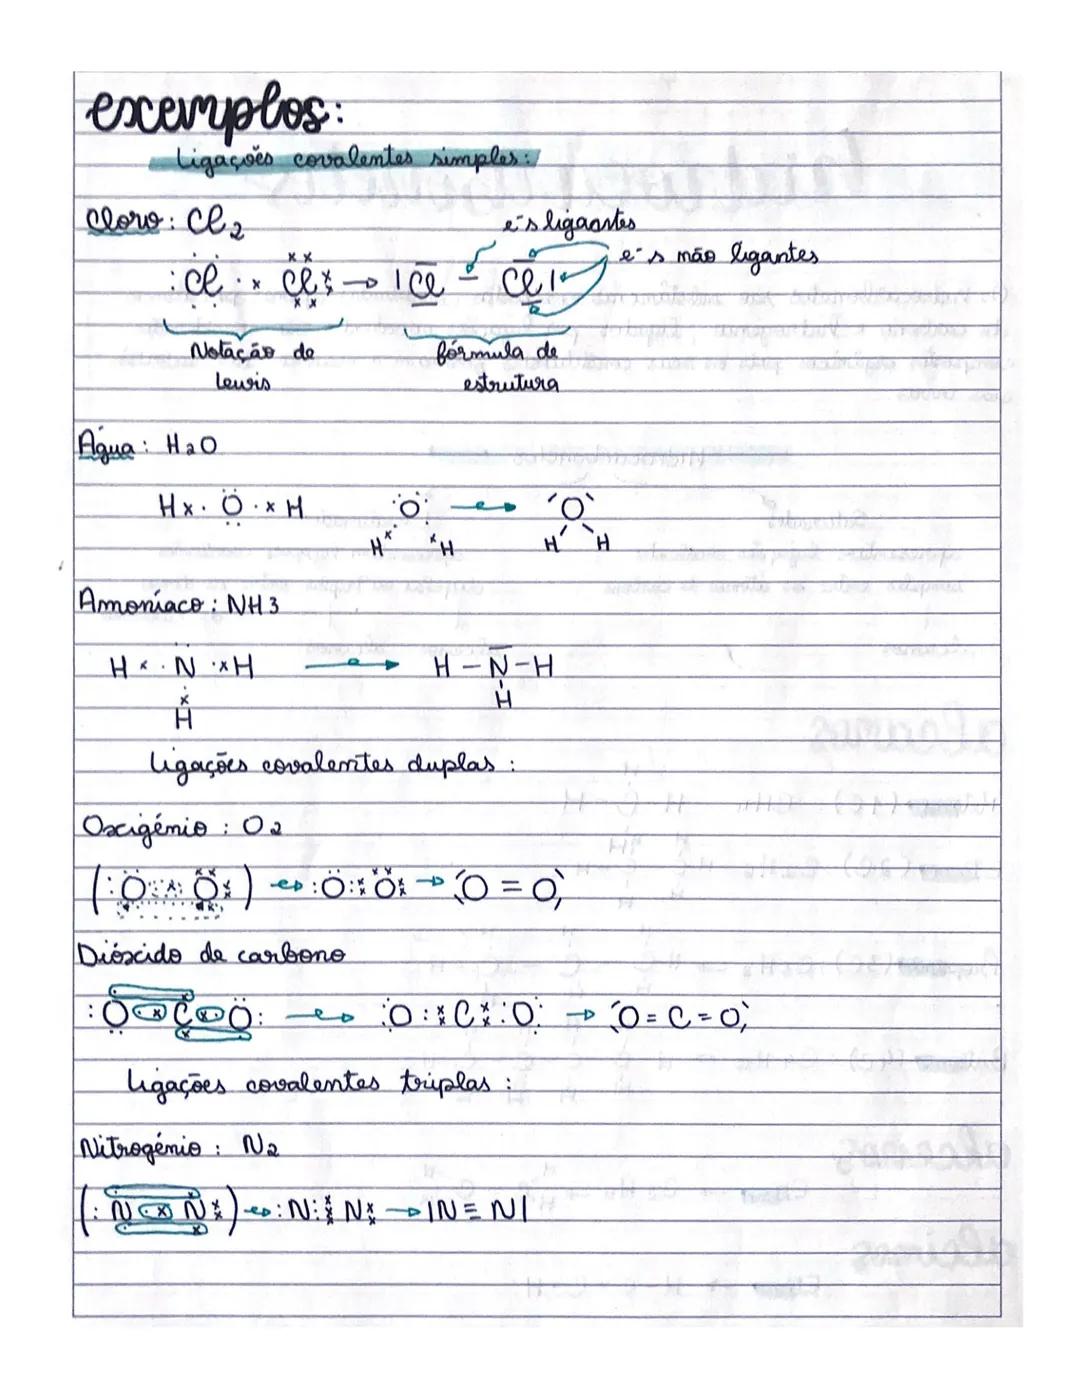 exemplos:
Ligações covalentes simples:
Cloro: Cl2
e-s ligantes
e-s não ligantes
:Cl · x Cl x → |Cl - Cl|
Notação de
Lewis
fórmula de
estrutura
Água: H2O
H x · O · x H
O → O
H x x H H H
Amoníaco: NH3
H x · N · x H → H - N - H
x
H H
Ligações covalentes duplas:
Oxigénio: O2
(:O · x · O x) → :O : x x O x → O = O
Dióxido de carbono
:O · x C x · O: → :O : x x C x x : O: → O = C = O
Ligações covalentes triplas:
Nitrogénio: N2
(: N · x N x) → :N : x x x N x x → |N ≡ N|